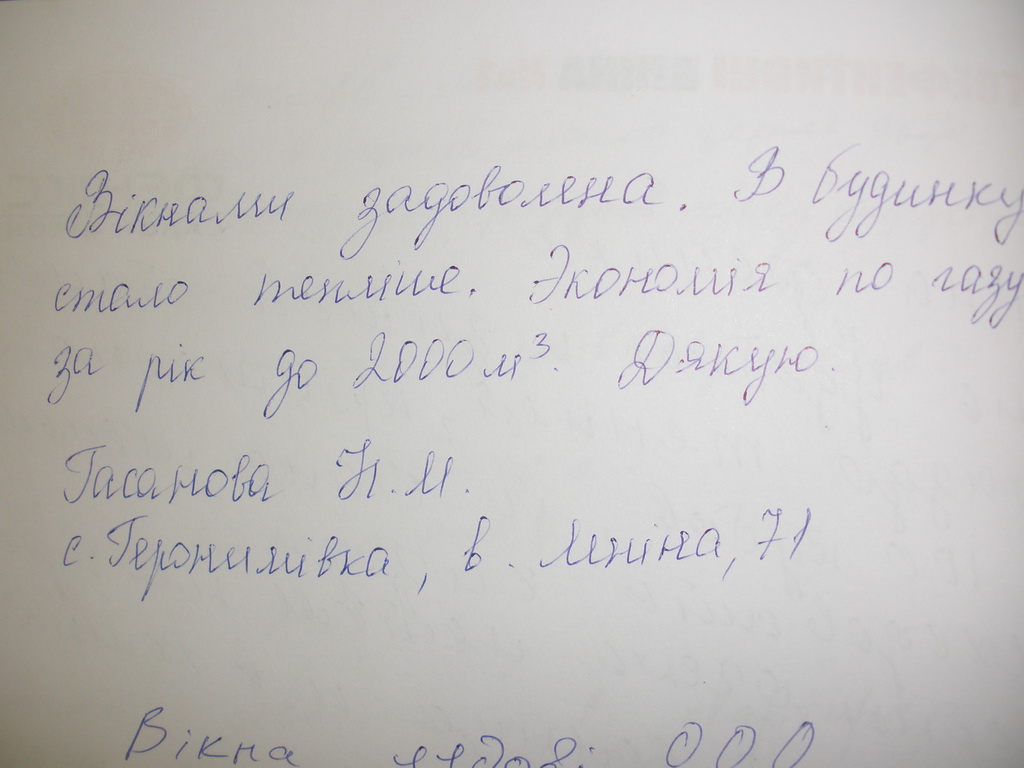 Вікнами задоволена. В будинку
стало тепліше. Экономія по газу
за рік до 2000 м³. Дякую.
Гасанова Н.М.
с. Геронимівка, в. Леніна, 71
Вікна